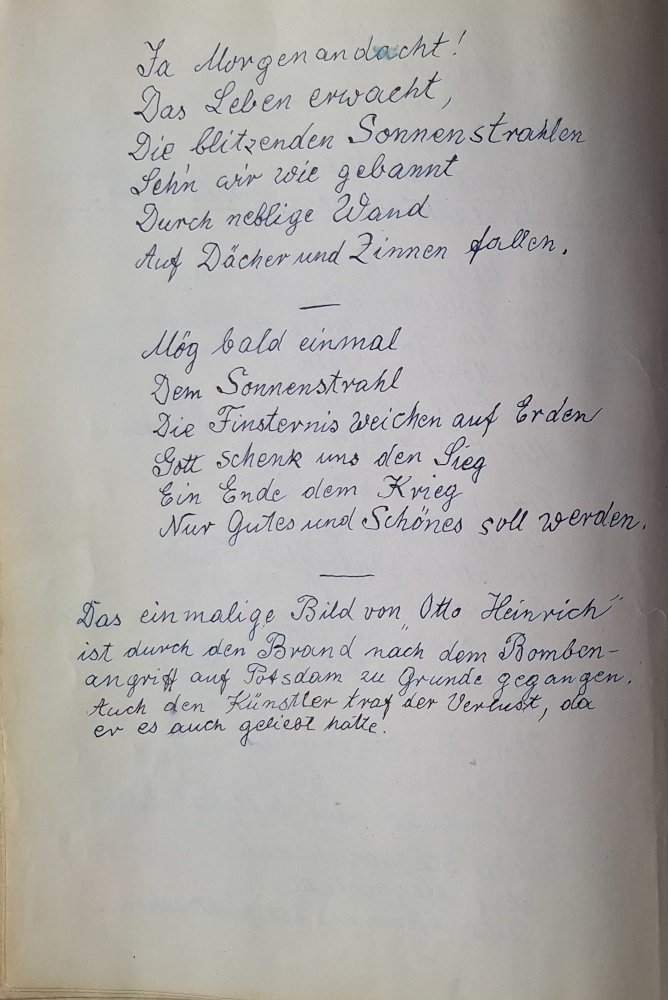 Ja Morgenandacht!
Das Leben erwacht,
Die blitzenden Sonnenstrahlen
Seh'n wir wie gebannt
Durch neblige Wand
Auf Dächer und Zinnen fallen.
—
Mög bald einmal
Dem Sonnenstrahl
Die Finsternis weichen auf Erden
Gott schenk uns den Sieg
Ein Ende dem Krieg
Nur Gutes und Schönes soll werden.
—
Das einmalige Bild von „Otto Heinrich“
ist durch den Brand nach dem Bomben-
angriff auf Potsdam zu Grunde gegangen.
Auch den Künstler traf der Verlust, da
er es auch geliebt hatte.